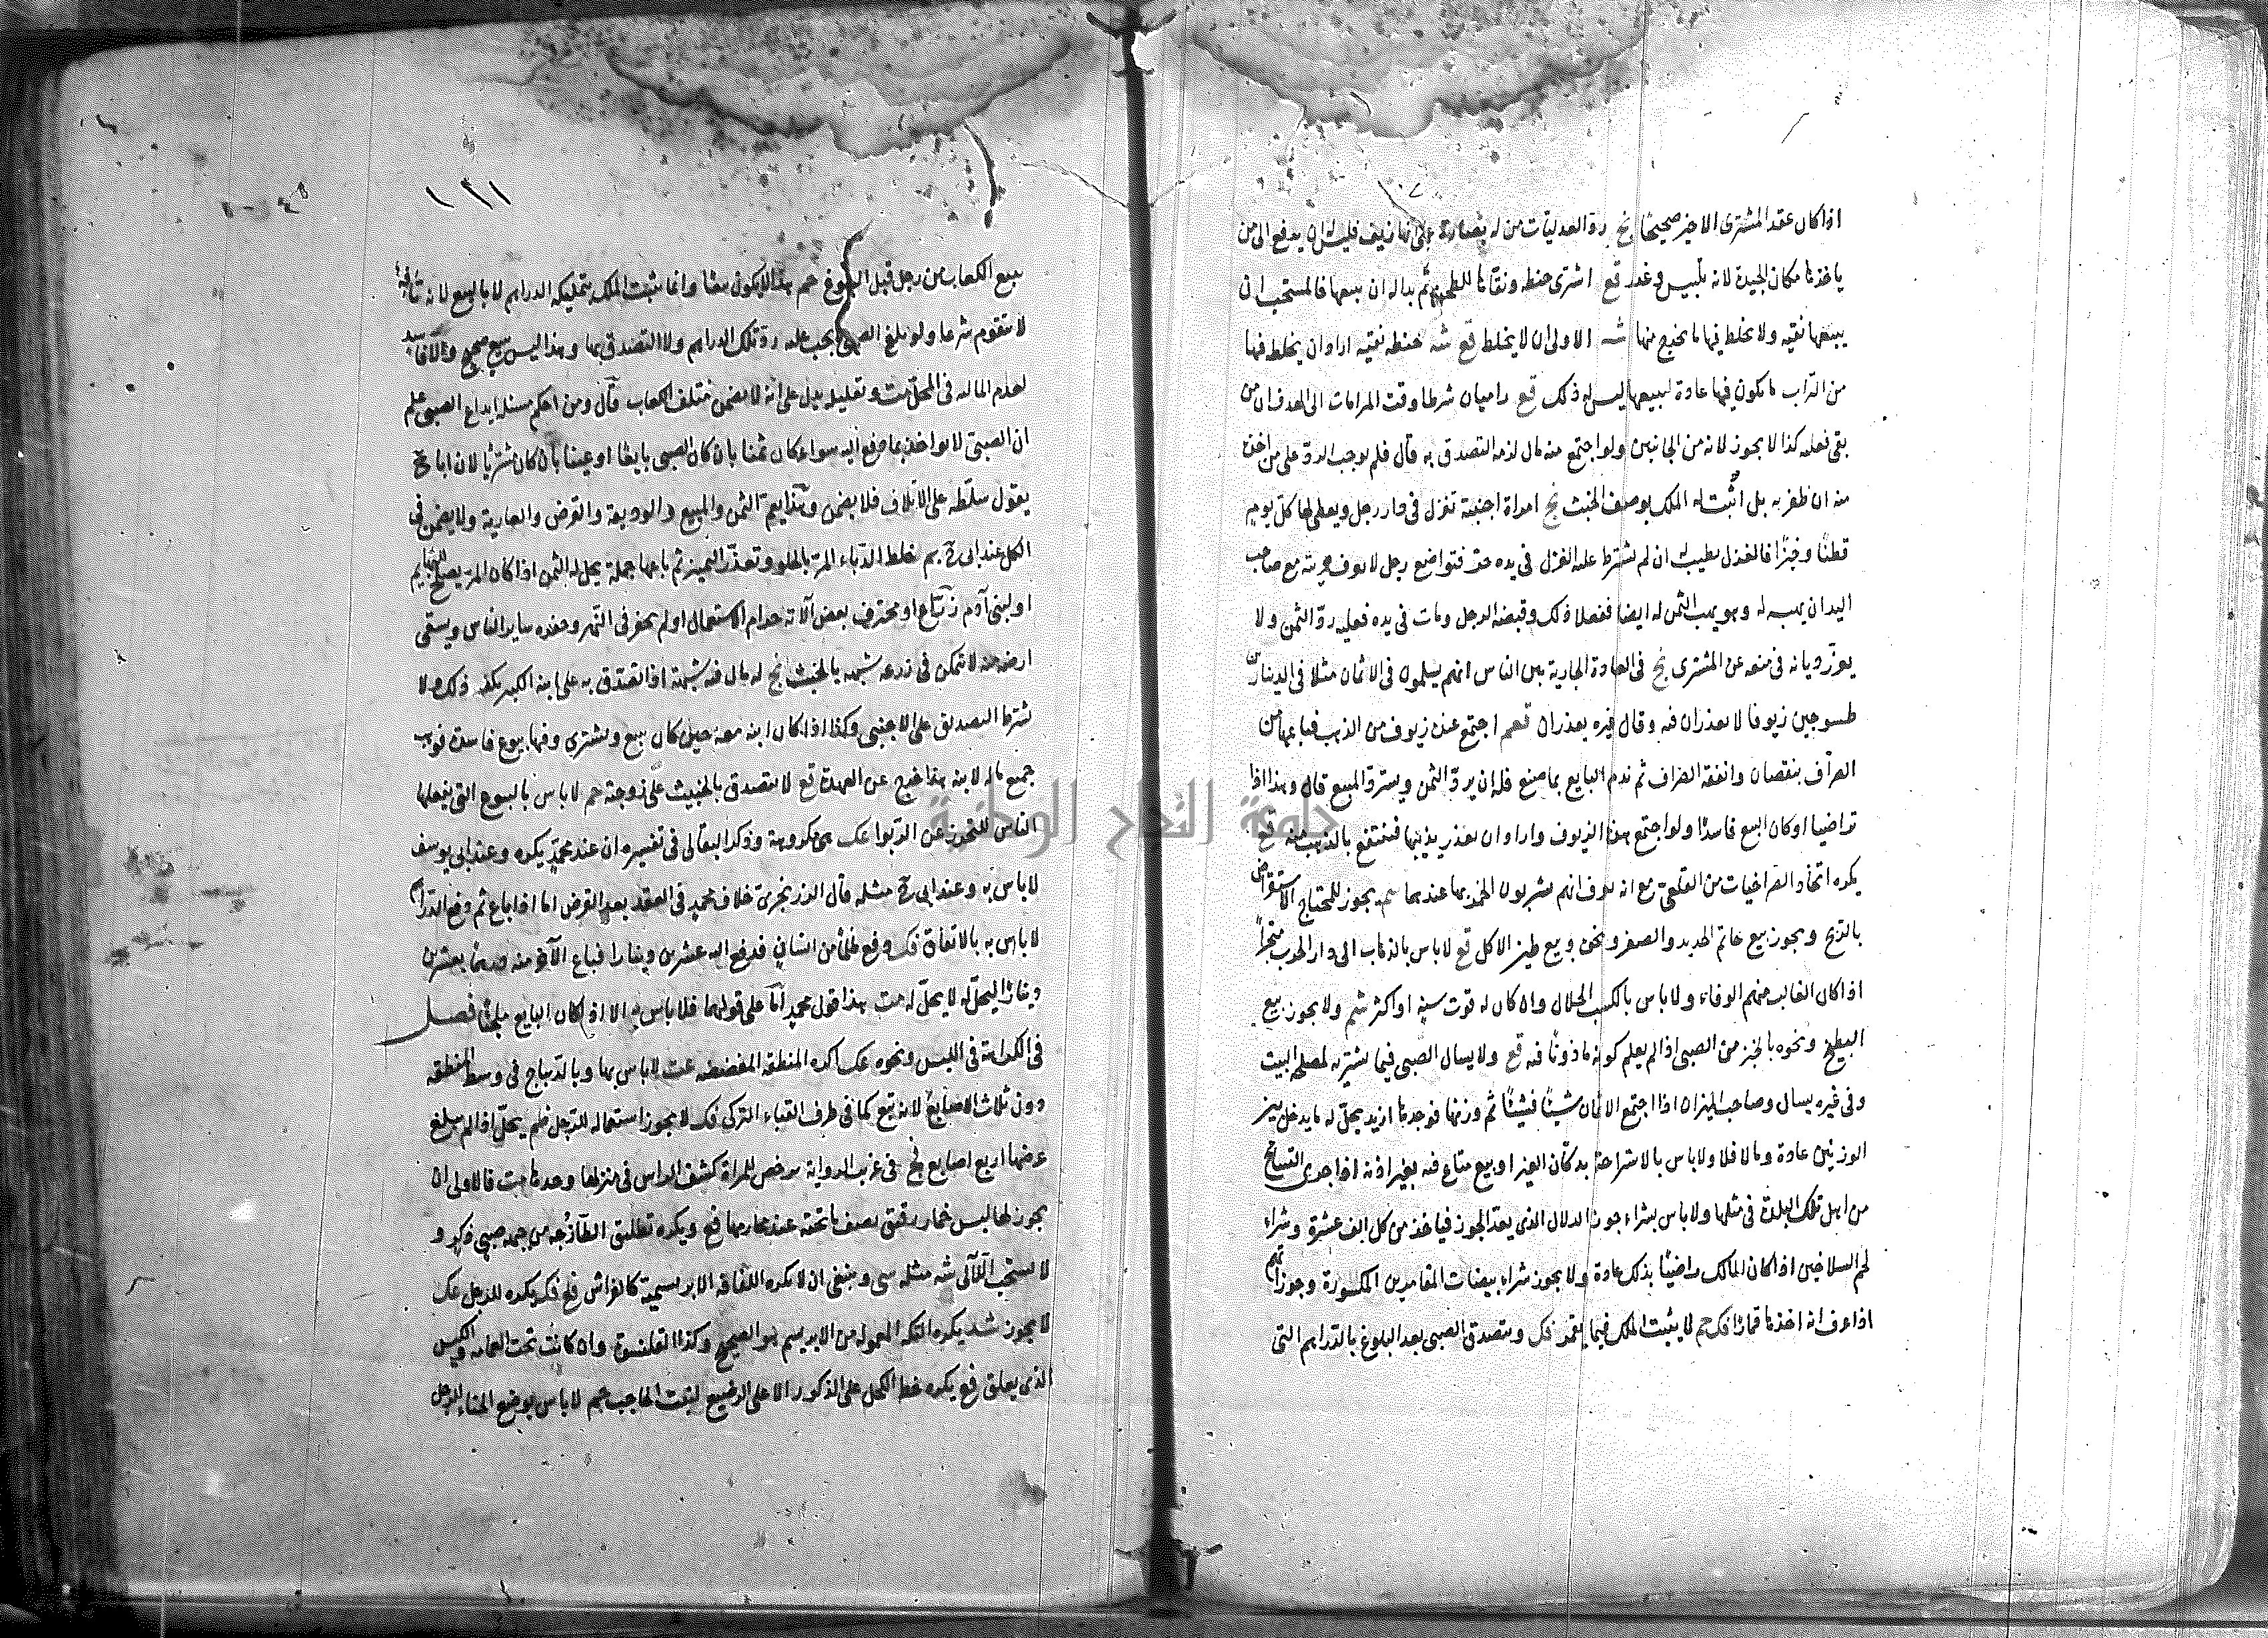 اذا كان عقد المشترى الاخير صحيحا نج رد العدليات من له على انها زيف فليس له ان يدفع الى من
ياخذها مكان الجيدة لانه تلبيس وغدر قع اشترى حنطة ونقاها للطحن ثم بدا له ان يبيعها فالمستحب ان
يبيعها نقيه ولا يخلط فيها ما يخرج منها شه الاولى ان لا يخلط قع شه حنطه نقيه اراد ان يخلط فيها
من التراب ما يكون فيها عادة لبيعها ليس له ذلك قع راميان شرطا وقت المرامات الى الهدف ان من
بقى فعله كذا لا يجوز لانه من الجانبين ولو اجتمع منه مال لزمه التصدق به قال فلم يوجب الرد على من اخذ
منه ان ظفر به بل اثبت له الملك بوصف الخبث نج امراة اجنبية تغزل فى دار رجل ويعطى لها كل يوم
قطنا وخبزا فالغزل يطيب له ان لم يشترط عليه الغزل فى يده فتواضع رجل لا يعرف حريته مع صاحب
اليد ان يهبه له وهو يهب الثمن له ايضا ففعلا ذلك وقبضه الرجل ومات فى يده فعليه رد الثمن ولا
فى منعه عن المشترى نج فى العادة الجارية بين الناس انهم يسلمون فى الاثمان مثلا فى الدينار
طسوجين زيوفا لا يعذران فيه وقال غيره يعذران اجتمع عنده زيوف من الذهب فباعها من
الصراف بنقصان وانفقه الصراف ثم ندم البايع بما صنع فله ان يرد الثمن ويسترد المبيع قال وهذا اذا
تراضيا او كان البيع فاسدا ولو اجتمع هذا الزيوف واراد ان يذيبها فينتفع بالذهب منه قع
يكره اتخاذ الصراخيات من القلعى مع انه يعرف انهم يشربون الخمر بها عندهما سم يجوز للمحتاج الاستقراض
بالربح ويجوز بيع خاتم الحديد والصفر ونحوه وبيع طين الاكل قع لا باس بالذهاب الى دار الحرب متجرا
اذا كان الغالب منهم الوفاء ولا باس بالكسب الحلال وان كان له قوت سنة او اكثر شم ولا يجوز بيع
البطيخ ونحوه بالخبز من الصبى اذا لم يعلم كونه ماذونا فيه قع ولا يسال الصبى فيما يشتريه لمصلحة البيت
وفى غيره يسال وصاحب الميزان اذا اجتمع الاثمان شيئا فشيئا ثم وزنها فوجدها ازيد يحل له ما يدخل بين
الوزنين عادة ومالا فلا ولا باس بالاستراحة بدكان الغير او بيع متاع فيه بغير اذنه اذا جرى التسامح
من اهل تلك البلدة فى مثلها ولا باس بشراء جوز الدلال الذى يعد الجوز فياخذ من كل الف عشرة وشراء
لحم السلاخين اذا كان المالك راضيا بذلك عادة ولا يجوز شراء بيضات المقامرين المكسورة وجوزاتهم
اذا عرف انه اخذها قمارا فك جم لا يثبت الملك فيما فك ويتصدق الصبى بعد البلوغ بالدراهم التى
١٢١
ببيع الكعاب من رجل قبل البلوغ جم هذا لا يكون بيعا وانما يثبت الملك بتمليكه الدراهم لا بالبيع لانه
لا يتقوم شرعا ولو بلغ الصبى يجب عليه رد تلك الدراهم ولا التصدق بها وهذا ليس ببيع صحيح ولا فاسد
لعدم المال فى المحل وتعليله يدل على انه لا يضمن متلف الكعاب قال ومن احكم مسئلة ايداع الصبى علم
ان الصبى لا يواخذ بما دفع اليه سواء كان ثمنا بان كان الصبى بايعا او عينا بان كان مشتريا لان ابا ح
يقول سلطه على الاتلاف فلا يضمن وهذا يعم الثمن والمبيع والوديعة والقرض والعارية ولا يضمن فى
الكل عند ابى ح بم خلط الدباء المر بالحلو وتعذر التمييز ثم باعها جملة يحل له الثمن اذا كان المر يصلح للبهايم
او لبنى آدم زراع او محترف بعض آلاته حرام الاستعمال او لم يحفر فى النهر وحفره ساير الناس ويسقى
ارضه منه لا تمكن فى زرعه شبهه بالخبث نج له مال فيه شبهة اذا تصدق به على ابنه الكبير يكفيه ذلك ولا
يشترط التصدق على الاجنبى وكذا اذا كان ابنه معه حين كان يبيع ويشترى وفيها بيوع فاسدة فوهب
جميع ماله لابنه هذا خرج عن العهدة قع لا يتصدق بالخبيث على زوجته جم لا باس بالبيوع التى يفعلها
الناس للتحرز عن الربوا عك هى مكروهة وذكر البقالى فى تفسيره ان عند محمد يكره وعند ابى يوسف
لا باس به وعند ابى ح مثله قال الزرنجرى خلاف محمد فى العقد بعد القرض اما اذا باع ثم دفع الدراهم
لا باس به بالاتفاق فك دفع من الثانى فدفع اليه عشرين دينارا فباع الآخر منه بعشرين
دينارا ليحل له لا يحل له هذا قول محمد اما على قولهما فلا باس به الا اذا كان البايع ملجئا فصل
فى الكراهة فى اللبس ونحوه عك اكره المنطقة المفضضه عت لا باس بها وبالديباج فى وسط المنطقه
دون ثلاث الاصابع لانه تبع كما فى طرف القباء التركى فك لا يجوز استعماله للرجل فلم يحل اذا لم يبلغ
عرضها اربع اصابع نج فى غريب الرواية يرخص للمراة كشف الراس فى منزلها وحدها فالاولى ان
يجوز لها لبس خمار رقيق يصف ما تحته عند محارمها فج ويكره تعليق من جهه صبى ذكر و
لا يستحب اللآلى شه مثله سى وينبغى ان لا يكره اللفافة الابريسمية كالفراش فج فك يكره للرجل عك
لا يجوز شد يكره التكة المعمولة من الابريسم هو الصحيح وكذا القلنسوة وان كانت تحت العمامة والكيس
الذى يعلق قع يكره خط الكحل على الذكور الا على الرضيع لينبت الحاجب جم لا باس بوضع الحناء للرجل